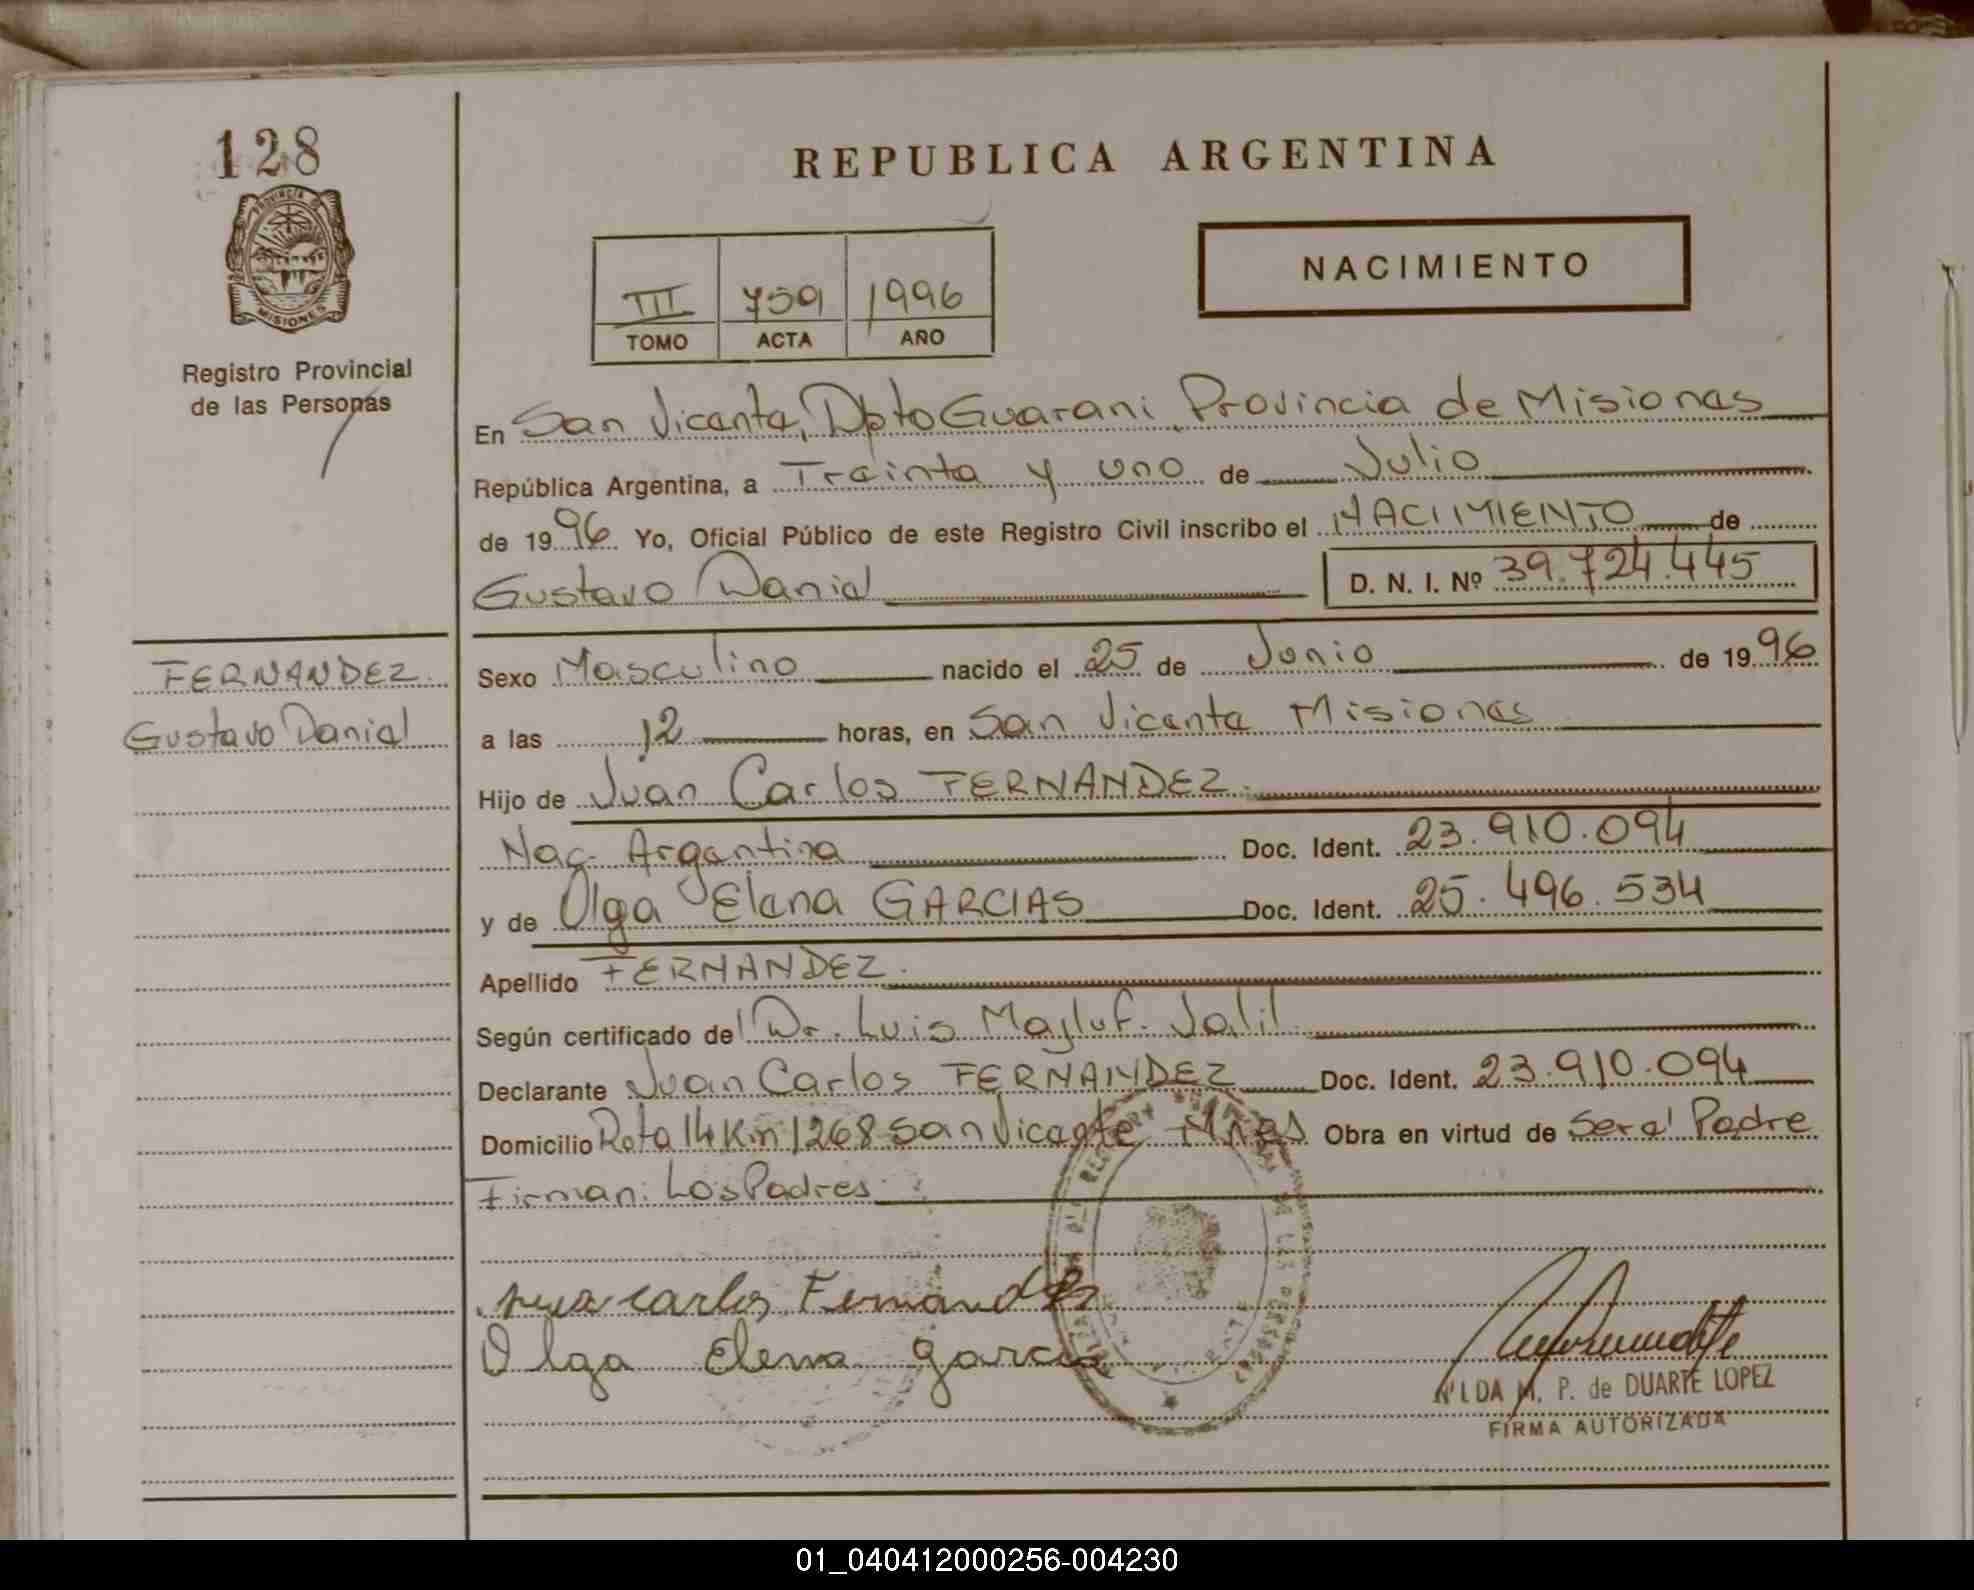 128
PROVINCIA DE
MISIONES
Registro Provincial
de las Personas
REPUBLICA ARGENTINA
III 759 1996
TOMO ACTA AÑO
NACIMIENTO
En San Vicente, Dpto Guarani Provincia de Misiones
República Argentina, a Treinta y uno de Julio
de 1996 Yo, Oficial Público de este Registro Civil inscribo el NACIMIENTO de
Gustavo Daniel D. N. I. Nº 39.724.445
FERNANDEZ
Gustavo Daniel
Sexo Masculino nacido el 25 de Junio de 1996
a las 12 horas, en San Vicente Misiones
Hijo de Juan Carlos FERNANDEZ
Nac. Argentina Doc. Ident. 23.910.094
y de Olga Elena GARCIAS Doc. Ident. 25.496.534
Apellido FERNANDEZ
Según certificado del Dr. Luis Majluf Jalil
Declarante Juan Carlos FERNANDEZ Doc. Ident. 23.910.094
Domicilio Rota 14 Km 1268 San Vicente Mnes Obra en virtud de Ser el Padre
Firman: Los Padres
Juan carlos Fernandez
Olga Elena garcia
NILDA M. P. de DUARTE LOPEZ
FIRMA AUTORIZADA
01_040412000256-004230